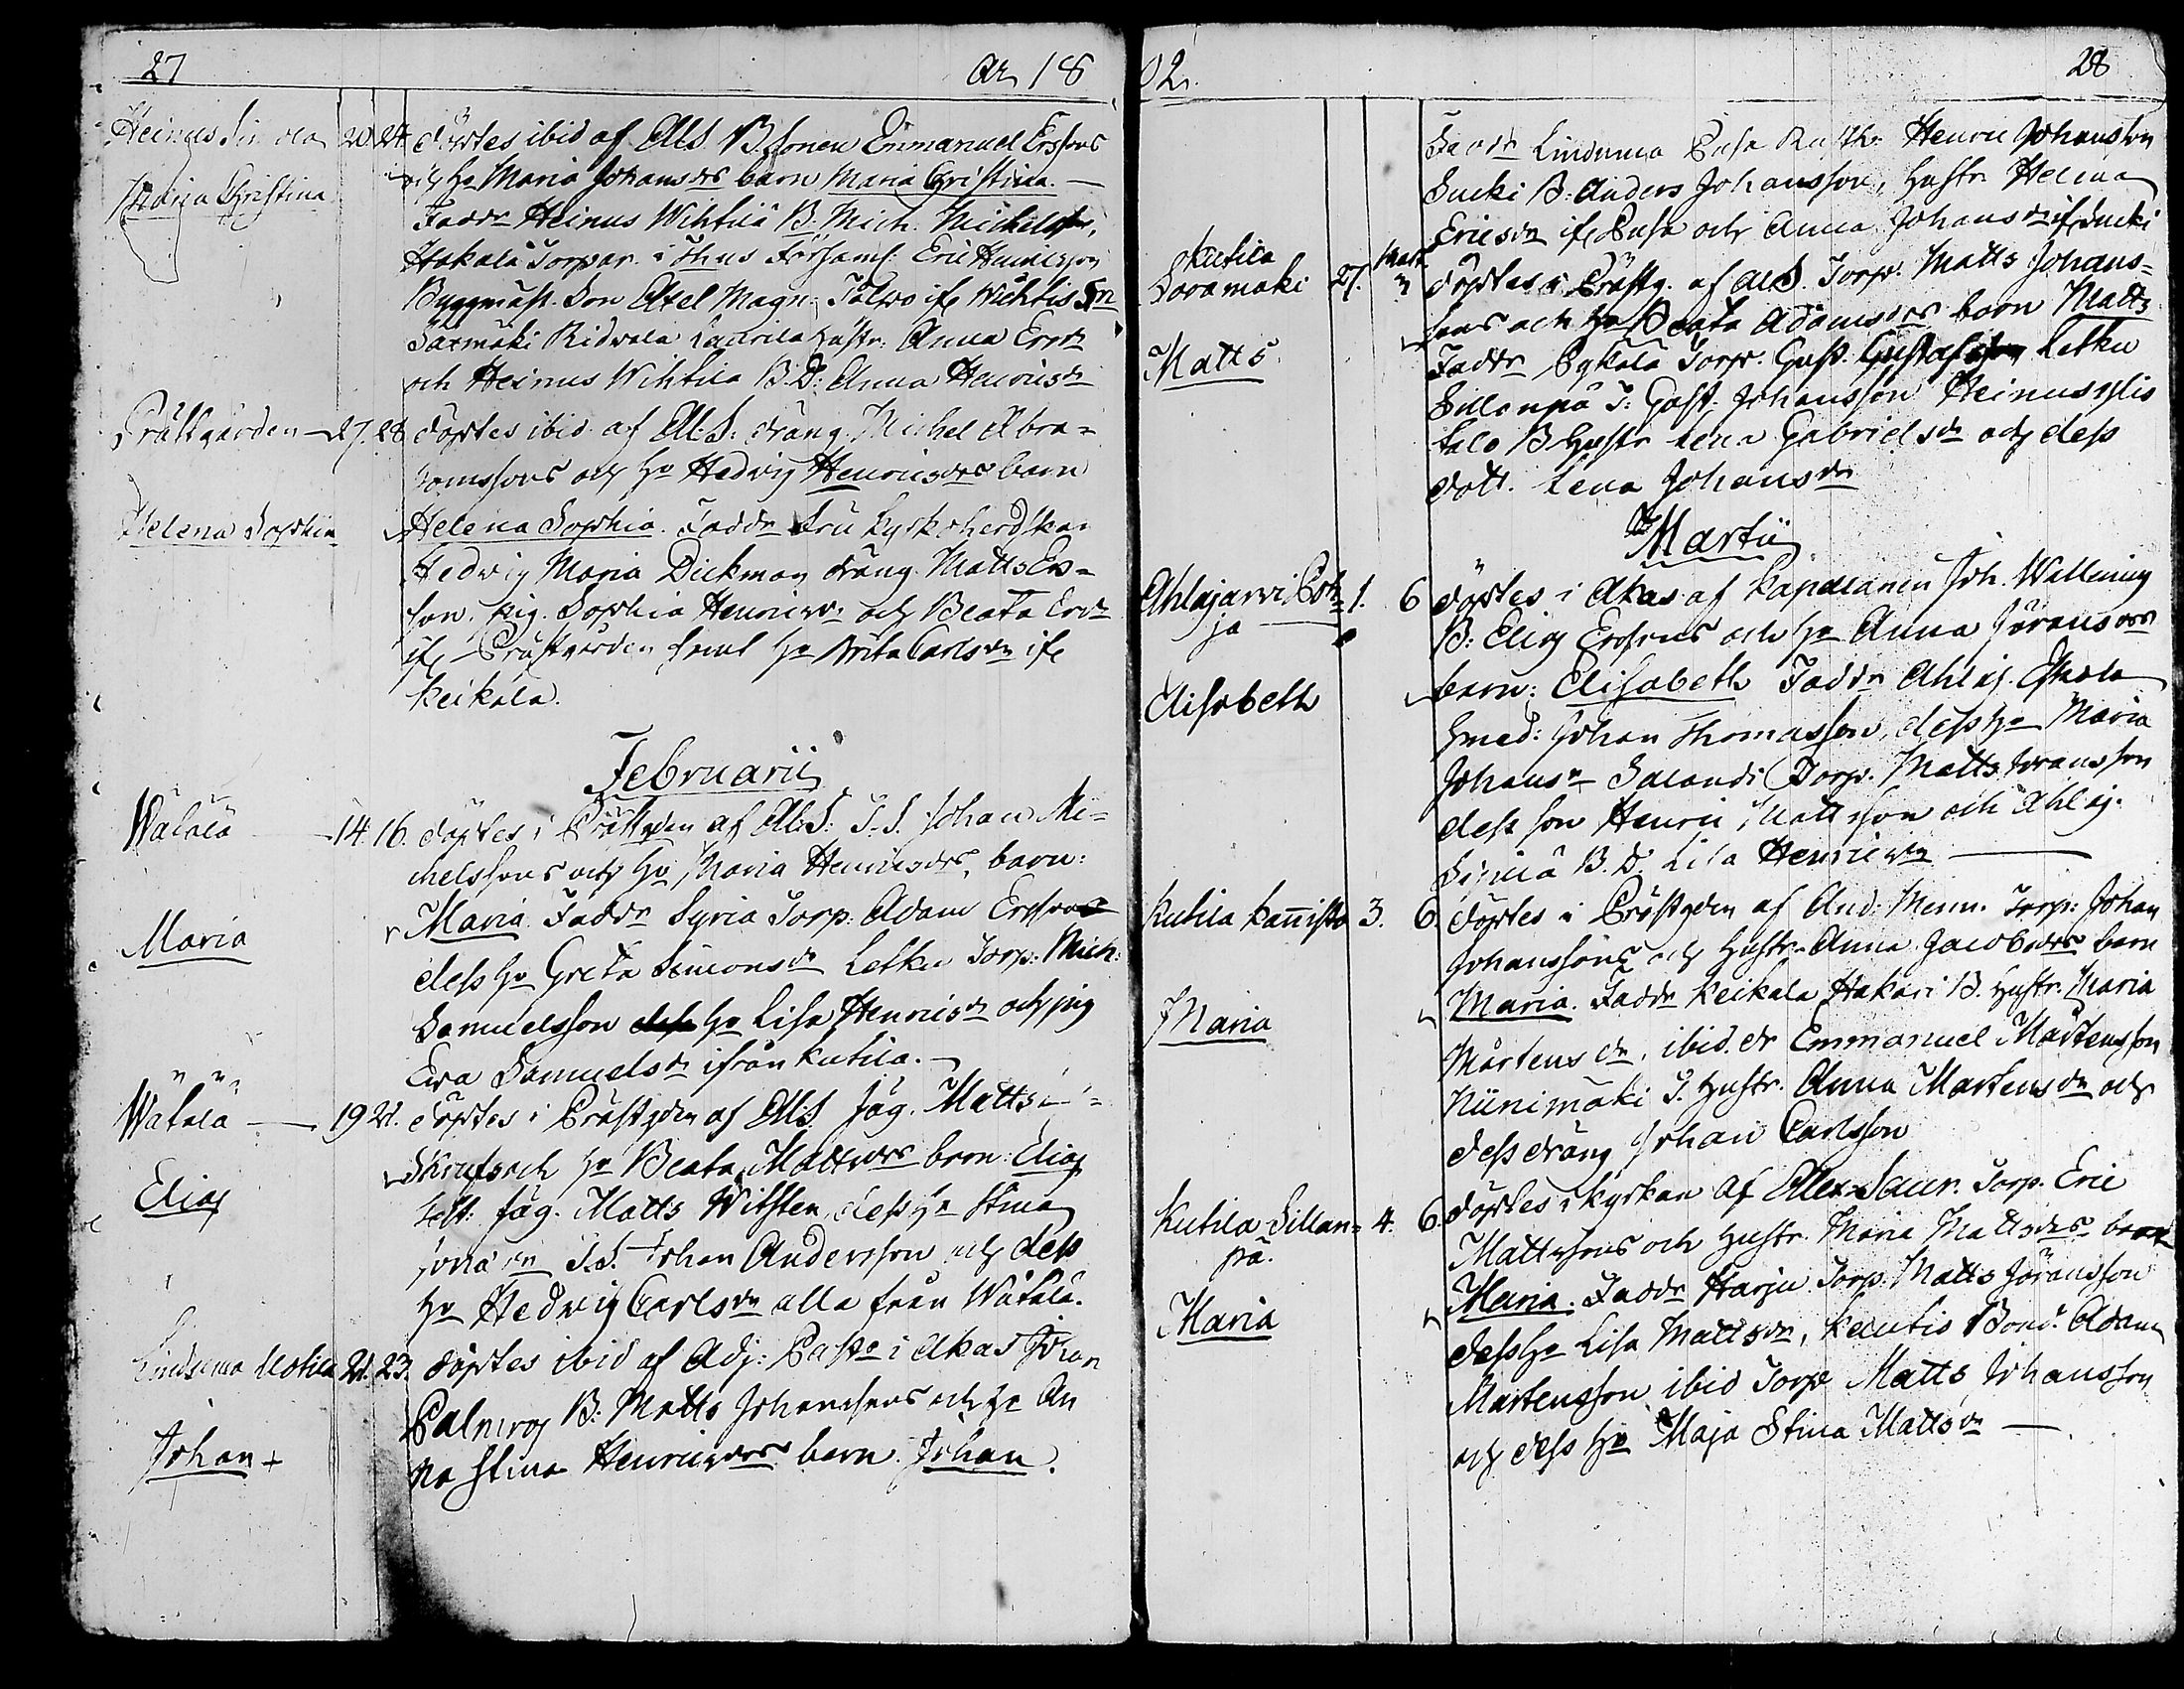 27
År 18
Heinus
20. 24. döptes ibid af Als B. sonen Emmanuel Erssons
och Ho Maria Johansdrs barn Maria Christina. —
Maria Christina
Faddr Heinus Wihtilä B. Mich. Michelss.
Hakala Torpar. i Församl: Eric Henricsson
Byggmäst. Son Axel Magn. ifr Wichtis Sn
Ridvala Laurila hustr. Anna Ersdr
och Heinus Wihtila B. D: Anna Henricsdr
Prästgården — 27. 28. döptes ibid af Al: S: dräng Michel Abra=
hamssons och Ho Hedvig Henricsdrs barn
Helena Sophia
Helena Sophia. Faddr Fru Kyrkoherdskan
Hedvig Maria Dickman dräng Matts Ers=
son. pig. Sophia Henricsdr och Beata Ersdr
ifr Prästgården samt Ho Brita Carlsdr ifr
Keikala.
Februarii
Wätälä — 14. 16. döptes i Prästgden af Al: S: J. S. Johan Mi=
chelssons och Ho Maria Henricsdrs, barn:
Maria
Maria. Faddr Syria Torp: Adam Ersson
dess Ho Greta Simonsdr Letku Torp: Mich:
Samuelsson dess Ho Lisa Henricsdr och pig
Eva Samuelsdr ifrån Kutila. —
Wätälä — 19 21. döptes i Prästgden af Al: S. Jäg. Matts
Skruf och Ho Beata Mattsdrs barn: Elias
Elias
test: Jäg. Matts Witsten, dess Ho Stina
J. S. Johan Andersson och dess
Ho Hedvig Carlsdr alla från Wätälä.
Linduma Motila 21. 23. döptes ibid af Adj: Past: i Akas Johan
Palmros B: Matts Johanssons och Ho An
Johan +
na Stina Henricsdrs barn Johan.
02.
28
Faddr Linduma Pusa Rusth. Henric Johansson
Sucki B: Anders Johansson, hustr. Helena
Ericsdr ifr Pusa och Anna Johansdr ifr Sucki
Kutila
Soramäki 27. Mart. döptes i Prästg. af Al S. Torp. Matts Johans=
sons och Ho Beata Adamsdrs barn Matts
Matts
Faddr Sykälä Torp. Gust. Gustafsson Letku
Sillanpä T: Gust. Johansson Heinus Ylis
talo B. hustr Lena Gabrielsdr och dess
dott. Lena Johansdr
Martii
Ahlajärvi 1. 6 döptes i Akas af Kapellanen Joh. Wallening
B: Elias Erssons och Ho Anna Jöransdrs
Elisabeth
barn: Elisabeth Faddr Ahlaj. Eskola
Smed: Johan Thomasson, dess Ho Maria
Johansdr Salandi Torp. Matts Jöransson
dess son Henric Mattsson och Ahlaj.
B. D. Lisa Henricsdr —
Kutila Kannisto 3. 6. döptes i Prästgden af And: Menn. Torp: Johan
Johanssons och Hustr. Anna Jacobsdrs barn
Maria
Maria. Faddr Keikala Hakari B. hustr. Maria
Mårtensdr, ibid. dr Emmanuel Mårtensson
Niinimäki T. hustr. Anna Mårtensdr och
dess dräng Johan Carlsson
Kutila Sillan= 4. 6. döptes i kyrkan af Alex. Saur. Torp. Eric
pä.
Mattssons och hustr. Maria Mattsdrs barn
Maria
Maria: Faddr Harju Torp. Matts Jöransson
dess Ho Lisa Mattsdr, Keutis Bond. Adam
Mårtensson, ibid Torp Matts Johansson
och dess Ho Maja Stina Mattsdr —